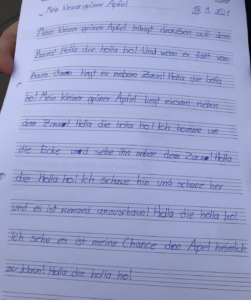 Mein kleiner grüner Apfel
19.3.2021
Mein kleiner grüner Apfel hängt draußen auf dem
Baum! Holla die holla ho! Und wenn er fällt vom
Baum dann liegt er neben Zaun! Holla die holla
ho! Mein kleiner grüner Apfel liegt einsam neben
dem Zaun! Holla die holla ho! Ich komme um
die Ecke und sehe ihn neber dem Zaun! Holla
die Holla ho! Ich schaue hin und schaue her
und es ist niemand anzuschaun! Holla die holla ho!
Ich sehe es ist meine Chance den Apel heimlich
zu klaun! Holla die holla ho!